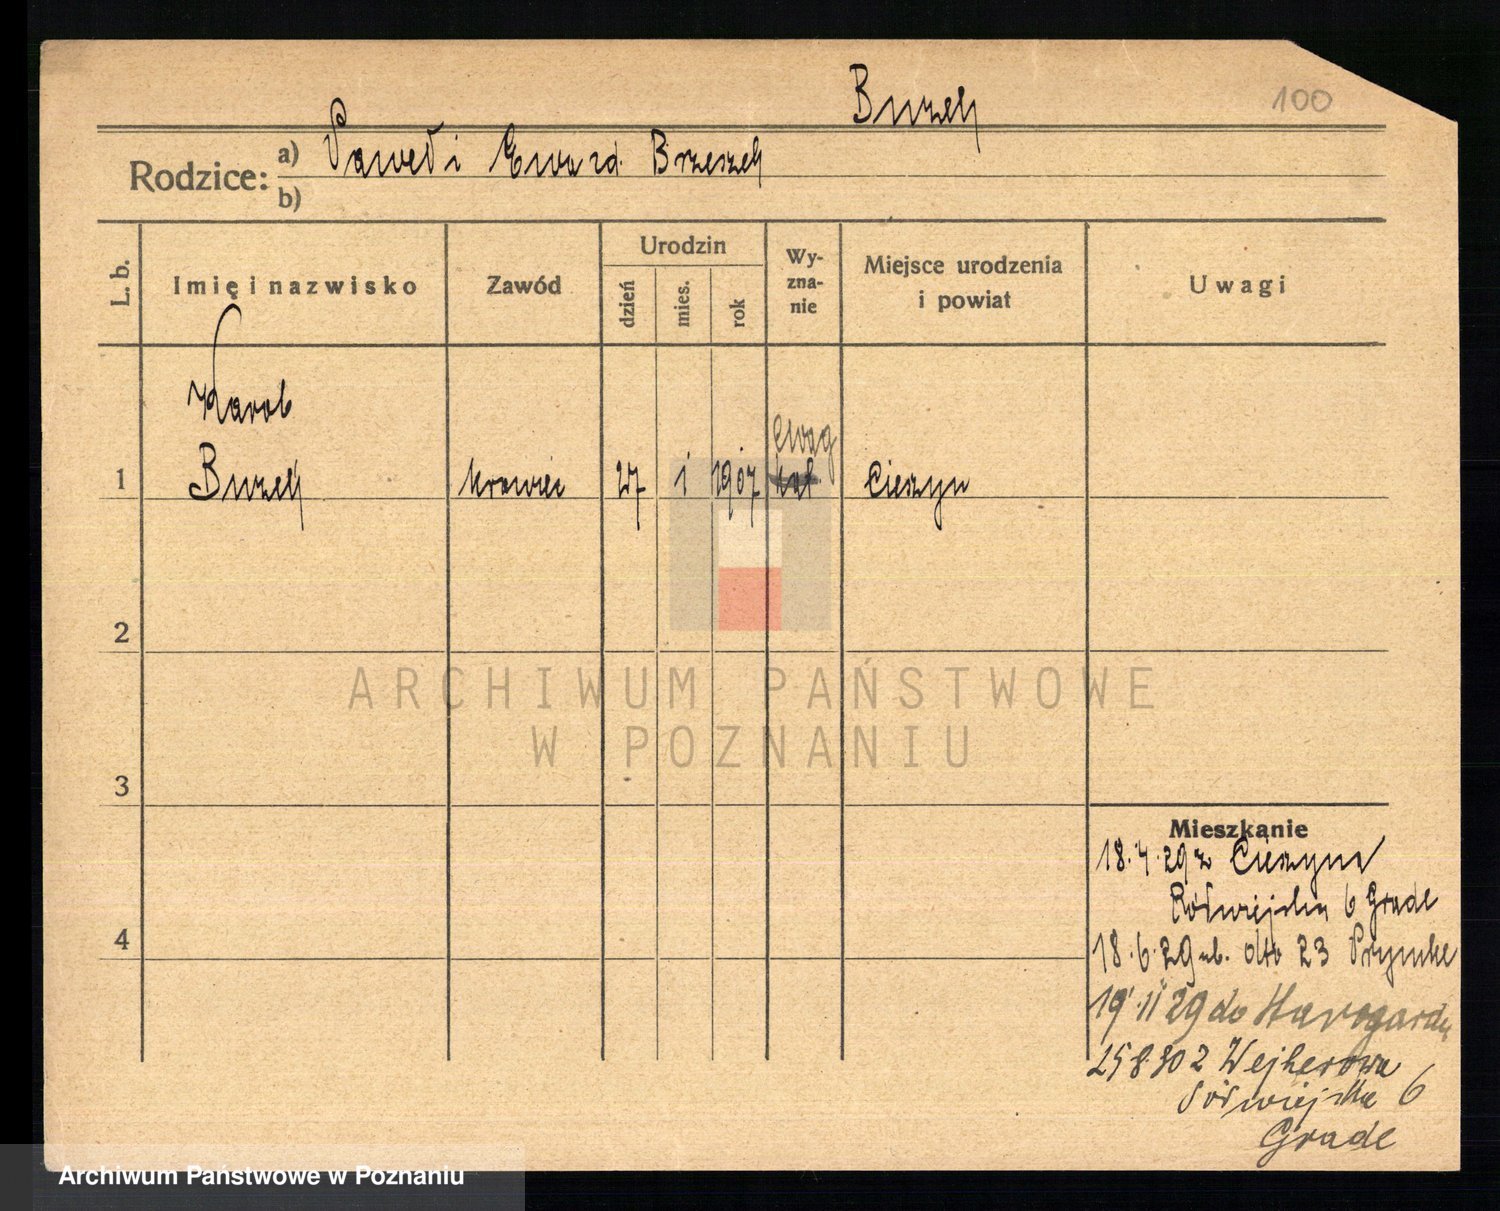 Buzek
100
Rodzice: a) Paweł i Ewa zd. Brzezek
b)
L. b.
Imię i nazwisko
Zawód
Urodzin
dzień
mies.
rok
Wy-
zna-
nie
Miejsce urodzenia
i powiat
Uwagi
Karol
ewag
1 Buzek krawiec 27 1 1907 kat. Cieszyn
2
ARCHIWUM PAŃSTWOWE
W POZNANIU
3
4
Mieszkanie
18.4.29 z Cieszyna
Półwiejska 6 Grade
18.6.29 ub. dto 23
19.11 29 do Starogardu
25 8 30 z Wejherowa
Półwiejska 6
Grade
Archiwum Państwowe w Poznaniu